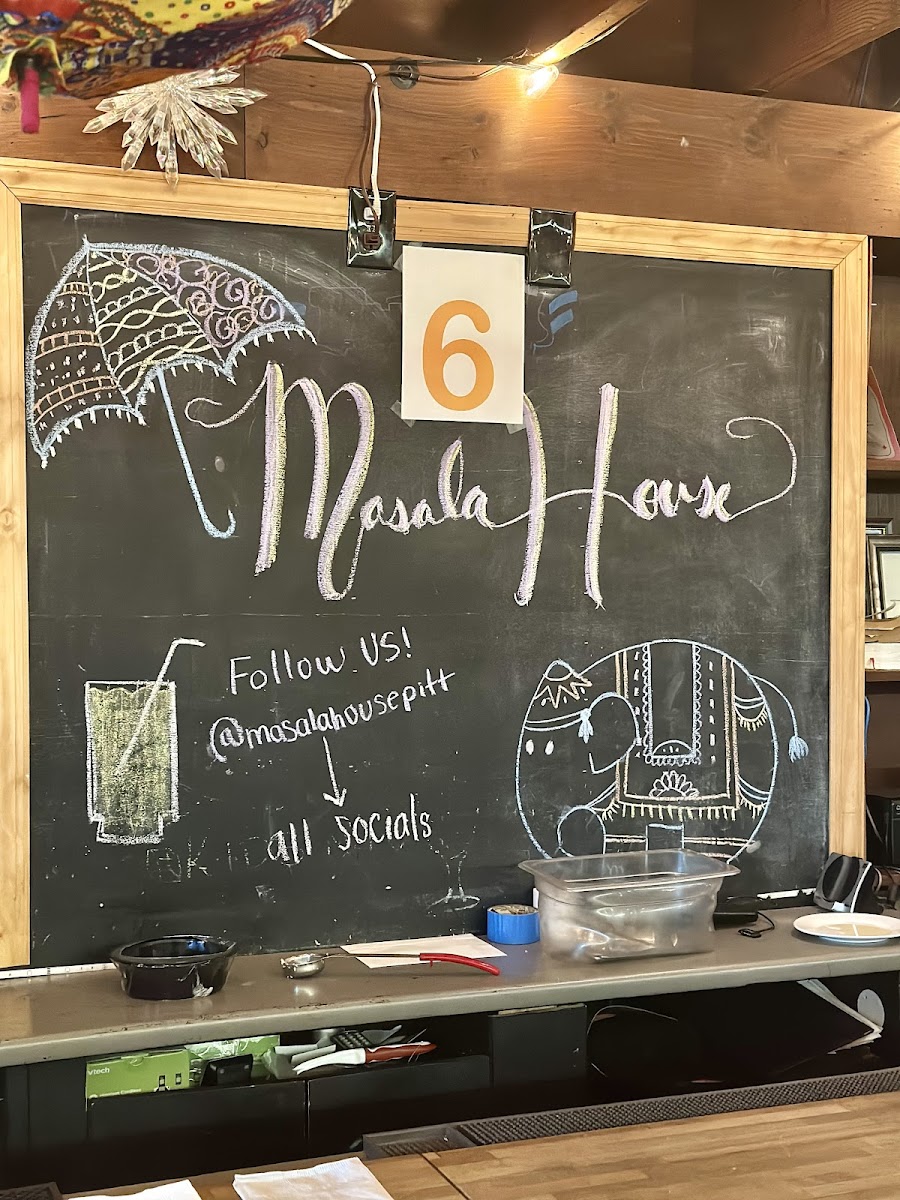 6
Masala House
Follow US!
@masalahousepitt
all socials
vtech